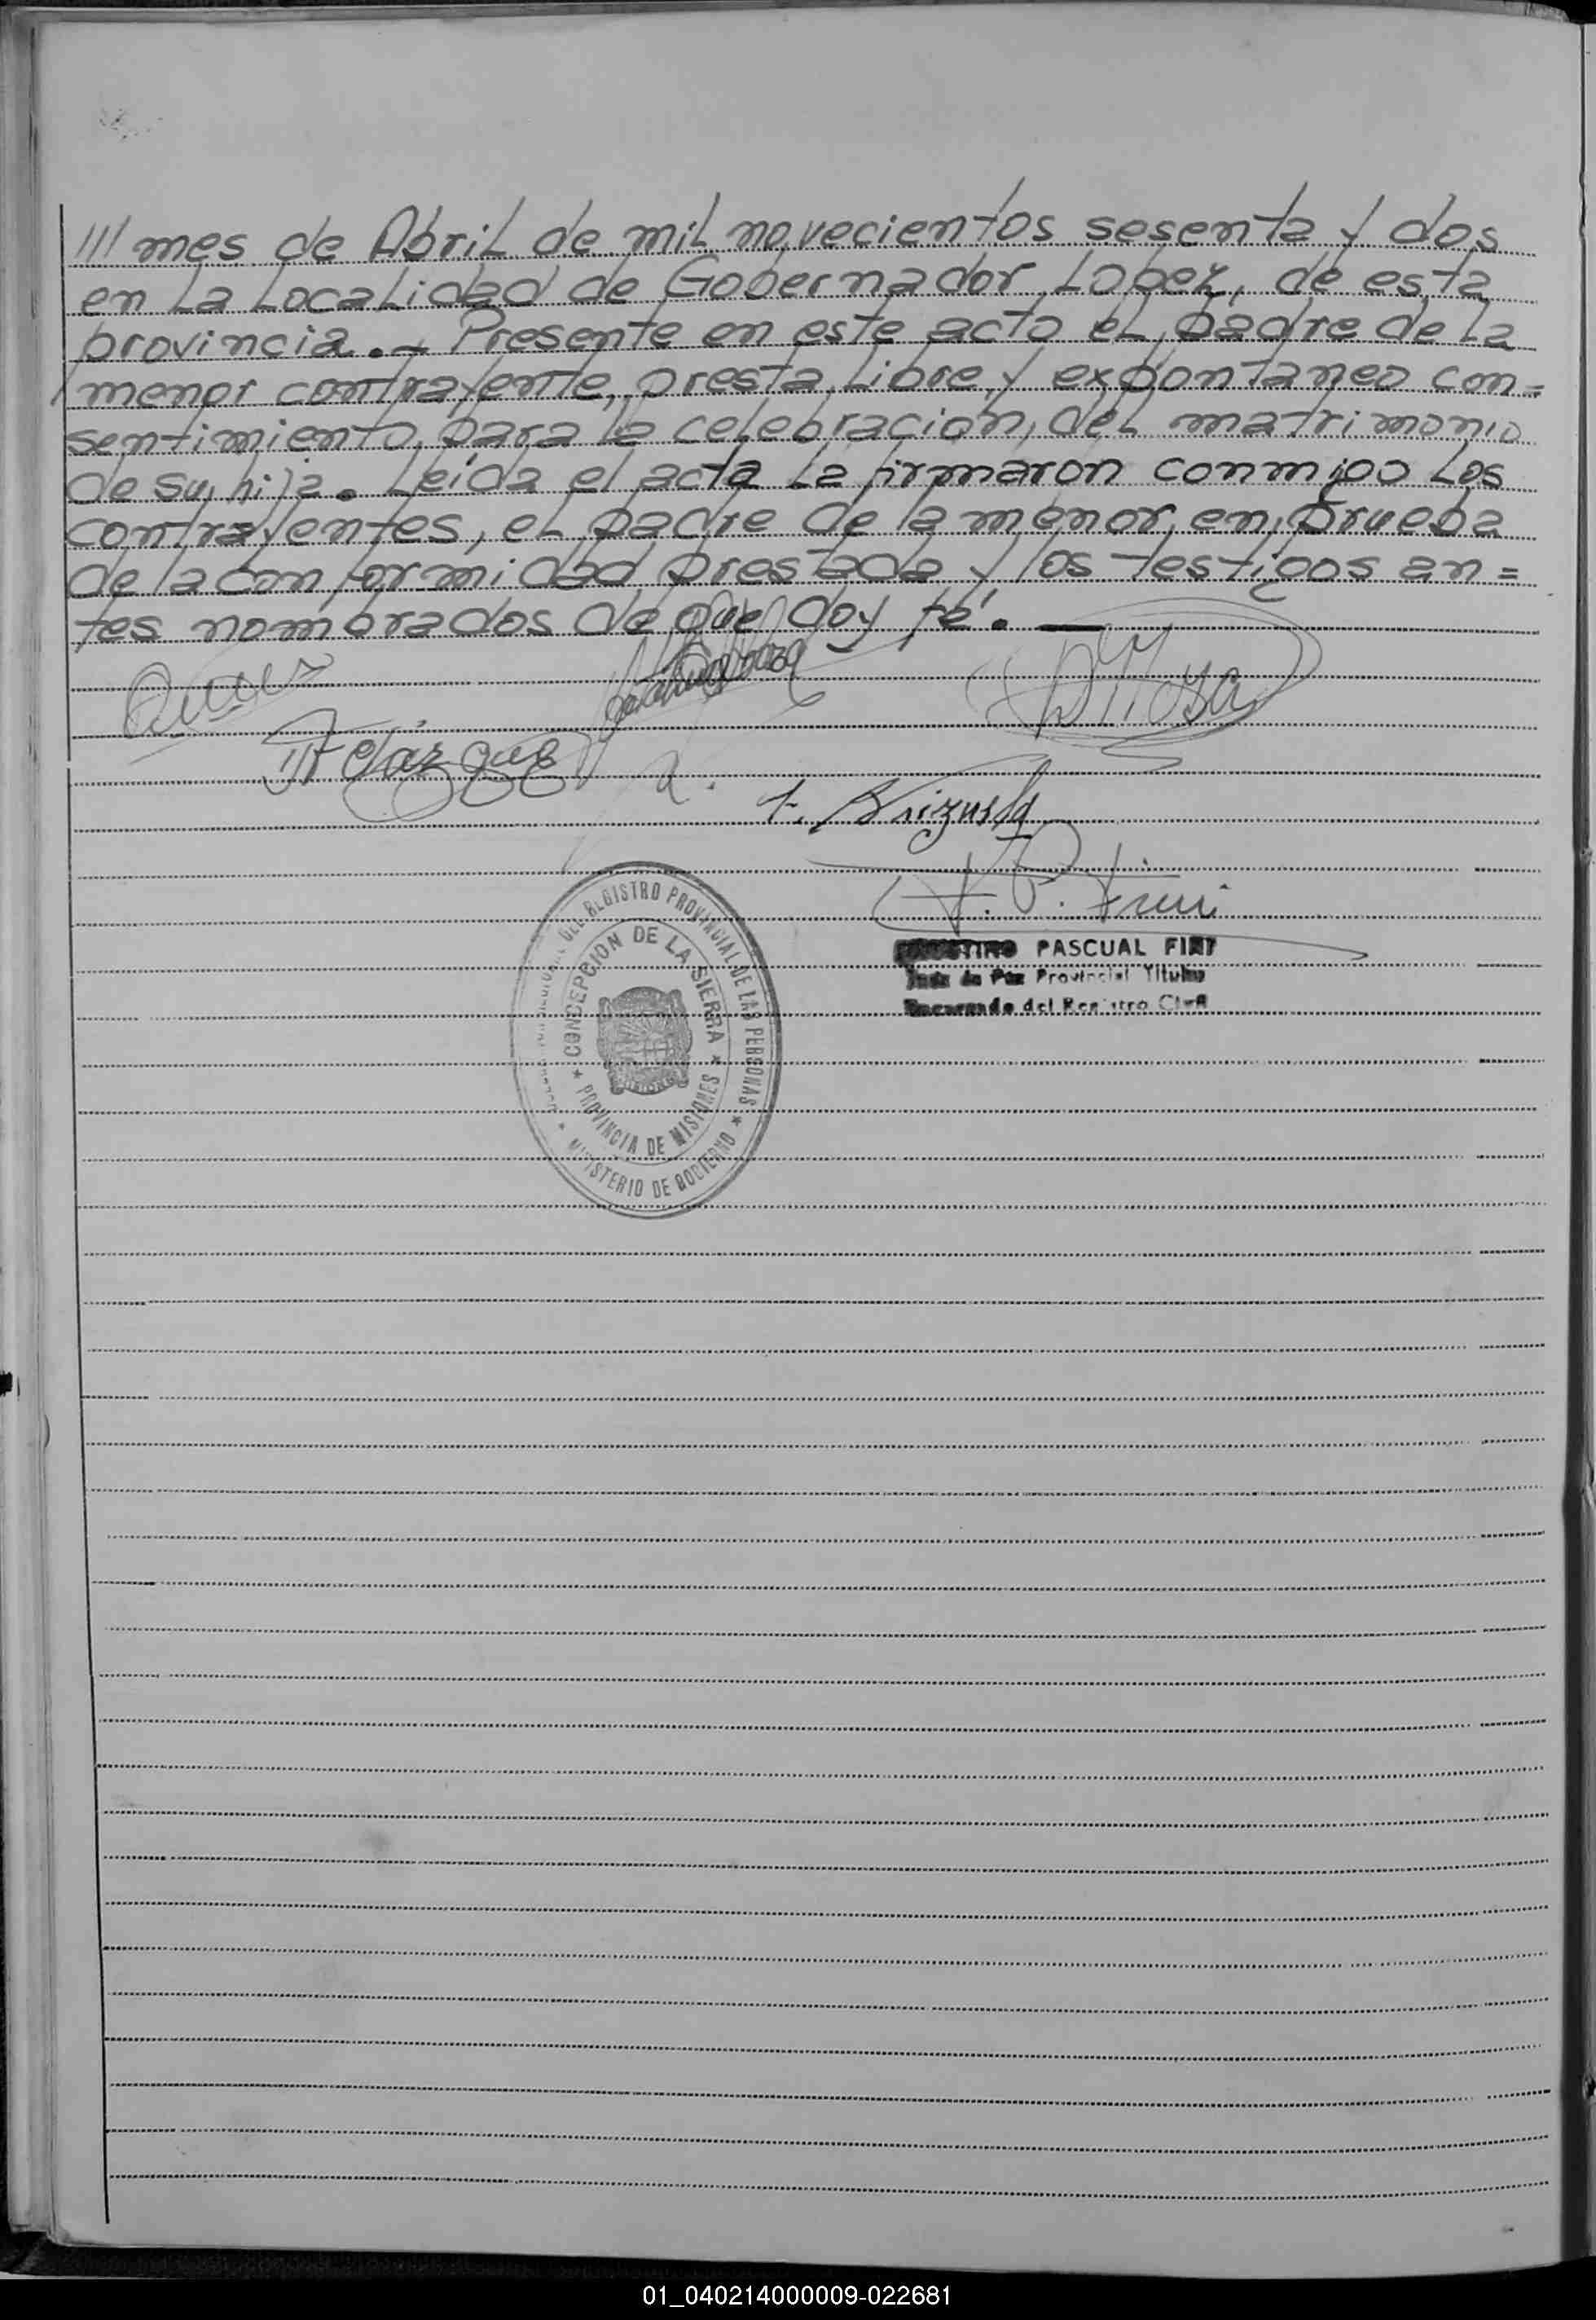 /// mes de Abril de mil novecientos sesenta y dos
en la Localidad de Gobernador Lopez, de esta
provincia.- Presente en este acto el padre de la
menor contrayente, presta libre y expontaneo con=
sentimiento para la celebración, del matrimonio
de su hija. Leída el acta la firmaron conmigo los
contrayentes, el padre de la menor en prueba
de la conformidad prestada y los testigos an=
tes nombrados de que doy fé. —
D Moya
Velázque
PASCUAL
Juez de Paz Provincial Titular
Encargado del Registro Civil
DEL REGISTRO PROVINCIAL DE LAS PERSONAS * MINISTERIO DE GOBIERNO *
CONCEPCION DE LA SIERRA * PROVINCIA DE MISIONES *
01_040214000009-022681